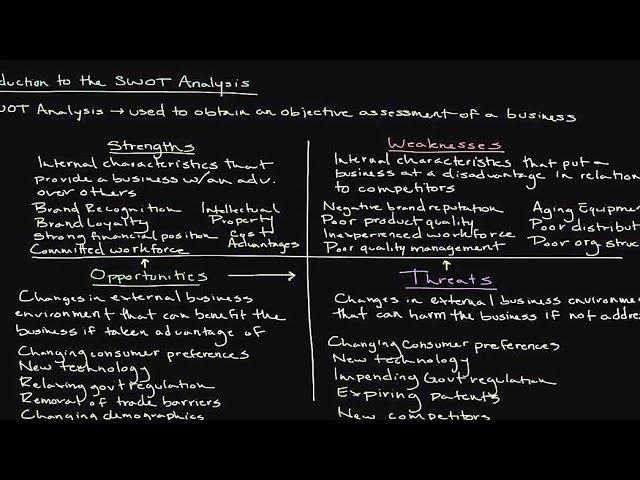 duction to the SWOT Analysis
OT Analysis → used to obtain an objective assessment of a business
Strengths
Internal characteristics that
provide a business w/an adv.
over others
Brand Recognition
Brand Loyalty
Strong financial position
Committed workforce
Intellectual
Property
Cost
Advantages
Weaknesses
Internal characteristics that put a
business at a disadvantage in relation
to competitors
Negative brand reputation
Poor product quality
Inexperienced workforce
Poor quality management
Aging Equipme
Poor distribut
Poor org struc
Opportunities
Changes in external business
environment that can benefit the
business if taken advantage of
Changing consumer preferences
New technology
Relaxing govt regulation
Removal of trade barriers
Changing demographics
Threats
Changes in external business environme
that can harm the business if not addre
Changing consumer preferences
New technology
Impending Govt regulation
Expiring patents
New competitors